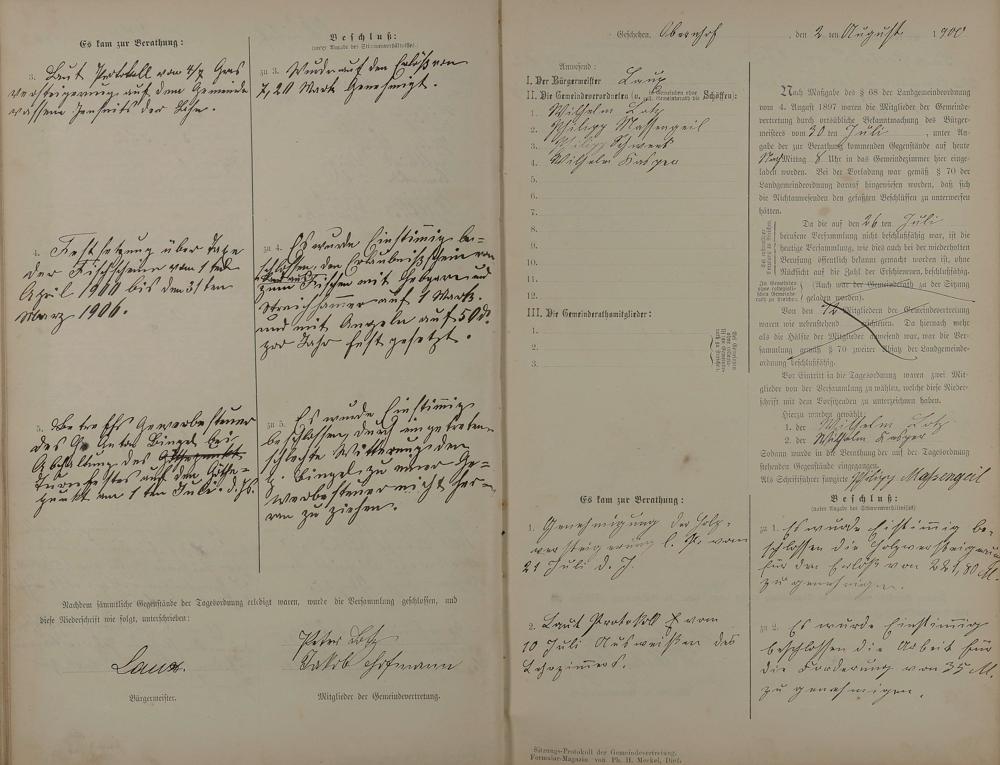 Es kam zur Berathung:
3. Laut Protokoll vom 4/7 Gras
versteigerung auf dem Gemeinde
wasem jenseits der Lahn.
4. Festsetzung über Taxe
der Fischscheine vom 1ten
April 1900 bis den 31ten
März 1906.
5. Betreffs Gewerbesteuer
des Anton Bingel bei
Abhaltung des
Turnfestes auf dem Göthe-
punkt am 1ten Juli d. Js.
Beschluß:
(unter Angabe des Stimmverhältnisses).
zu 3. Wurde auf den Erlös von
7,20 Mark Genehmigt.
zu 4. Es wurde Einstimmig be=
schlossen, den Erlaubnißschein
zum Fischen mit Hebgarn und
Streichhamer auf 1 Mark.
und mit Angeln auf 50 d.
pro Jahr fest gesetzt.
zu 5. Es wurde Einstimmig
beschlossen, durch eingetretene
schlechte Witterung den
Bingel zu einer Ge=
werbesteuer nicht her=
ran zu ziehen.
Nachdem sämmtliche Gegenstände der Tagesordnung erledigt waren, wurde die Versammlung geschlossen, und
diese Niederschrift wie folgt, unterschrieben:
Laux.
Bürgermeister.
Peter Lotz
Jakob Hofmann
Mitglieder der Gemeindevertretung.
Geschehen, Obernhof, den 2ten August 1900
Anwesend:
I. Der Bürgermeister Laux
II. Die Gemeindeverordneten (u. in Gemeinden ohne coll. Gemeinderath die Schöffen):
1. Wilhelm Lotz
2. Philipp Massengeil
3. Philipp Schwarz
4. Wilhelm Kasper
5.
6.
7.
8.
9.
10.
11.
12.
III. Die Gemeinderathsmitglieder:
1.
2.
3.
Nach Maßgabe des § 68 der Landgemeindeordnung
vom 4. August 1897 waren die Mitglieder der Gemeinde-
vertretung durch ortsübliche Bekanntmachung des Bürger-
meisters vom 30ten Juli, unter An-
gabe der zur Berathung kommenden Gegenstände auf heute
Nachmittag 8 Uhr in das Gemeindezimmer hier einge-
laden worden. Bei der Vorladung war gemäß § 70 der
Landgemeindeordnung darauf hingewiesen worden, daß sich
die Nichtanwesenden den gefaßten Beschlüssen zu unterwerfen
hätten.
Da die auf den 26ten Juli
berufene Versammlung nicht beschlußfähig war, ist die
heutige Versammlung, wie dies auch bei der wiederholten
Berufung öffentlich bekannt gemacht worden ist, ohne
Rücksicht auf die Zahl der Erschienenen, beschlußfähig.
(Auch war der Gemeinderath zu der Sitzung
geladen worden).
Von den 12 Mitgliedern der Gemeindevertretung
waren wie nebenstehend erschienen. Da hiernach mehr
als die Hälfte der Mitglieder anwesend war, war die Ver-
sammlung gemäß § 70 zweiter Absatz der Landgemeinde-
ordnung beschlußfähig.
Vor Eintritt in die Tagesordnung waren zwei Mit-
glieder von der Versammlung zu wählen, welche diese Nieder-
schrift mit dem Vorsitzenden zu unterzeichnen haben.
Hierzu wurden gewählt:
1. der Wilhelm Lotz
2. der Wilhelm Kasper
Sodann wurde in die Berathung der auf der Tagesordnung
stehenden Gegenstände eingegangen.
Als Schriftführer fungirte Philipp Massengeil
Es kam zur Berathung:
1. Genehmigung der Holz-
versteigerung l. P. vom
21 Juli d. J.
2. Laut Protokoll vom
10 Juli Ausweißen des
Lehrzimmers.
Beschluß:
(unter Angabe des Stimmverhältnisses)
zu 1. Es wurde Eistimmig be-
schlossen die Holzversteigerung
für den Erlöß von 221,80 M.
zu genehmigen.
zu 2. Es wurde Einstimmig
beschlossen die Arbeit für
die Forderung von 35 M.
zu genehmigen.
Sitzungs-Protokoll der Gemeindevertretung.
Formular-Magazin von Ph. H. Meckel, Diez.